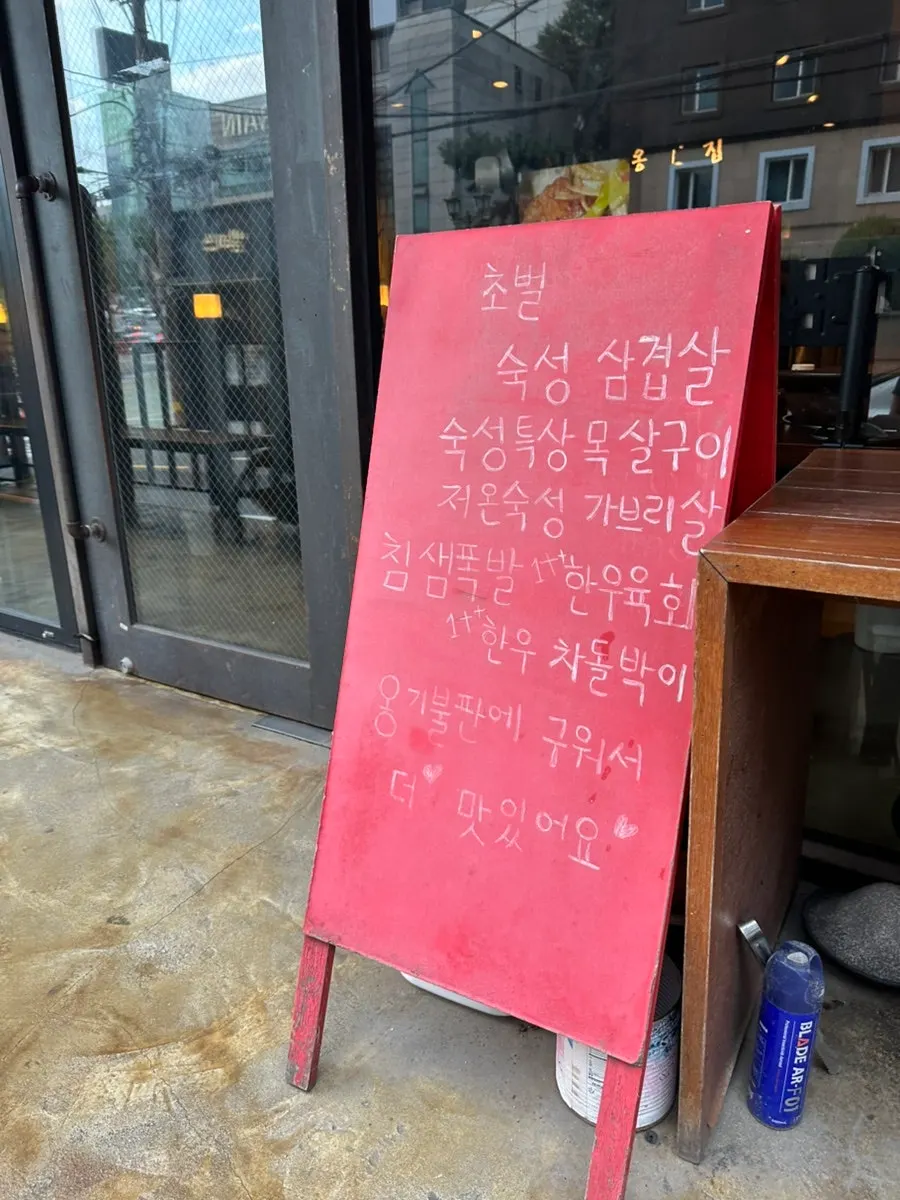 초벌
숙성 삼겹살
숙성특상목살구이
저온숙성 가브리살
침샘폭발 1++한우육회
1++한우 차돌박이
옹기불판에 구워서
더♡ 맛있어요♡
BLADE AR-F01